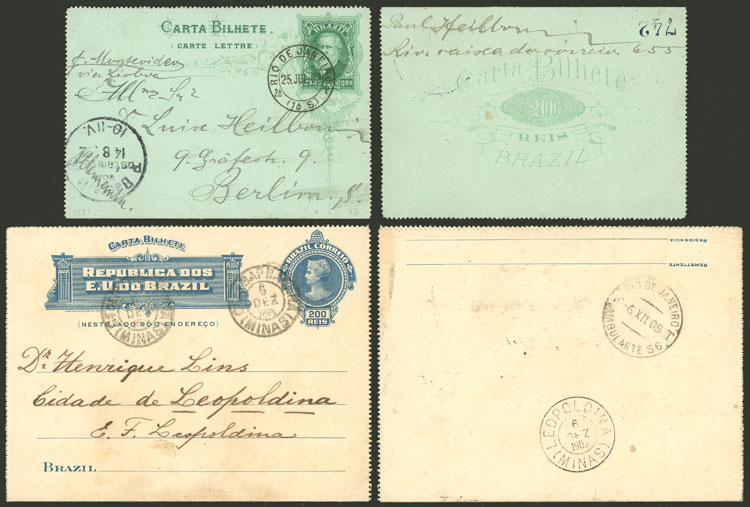 CARTA BILHETE.
(CARTE LETTRE)
BRAZIL
200 200
RIO DE JANEIRO
25 JUL
(1ª S.)
p. Montevideo
via Lisboa
Luise Heilborn
9. Gräfestr. 9.
Berlin, S.
10-11V.
14 8
Paul Heilborn
742
Rio, caixa do correio 655
Carta Bilhete
200
REIS
BRAZIL
CARTA BILHETE
REPUBLICA DOS
E.U. DO BRAZIL
(NESTE LADO SÓ O ENDEREÇO)
BRAZIL CORREIO
200
REIS
6
DEZ
(MINAS)
DEZ
(MINAS)
Dr. Henrique Lins
Cidade de Leopoldina
E. F. Leopoldina
BRAZIL
RESIDENCIA
REMETTENTE
RIO DE JANEIRO
AMBULANTE S6
LEOPOLDINA
6
DEZ
(MINAS)